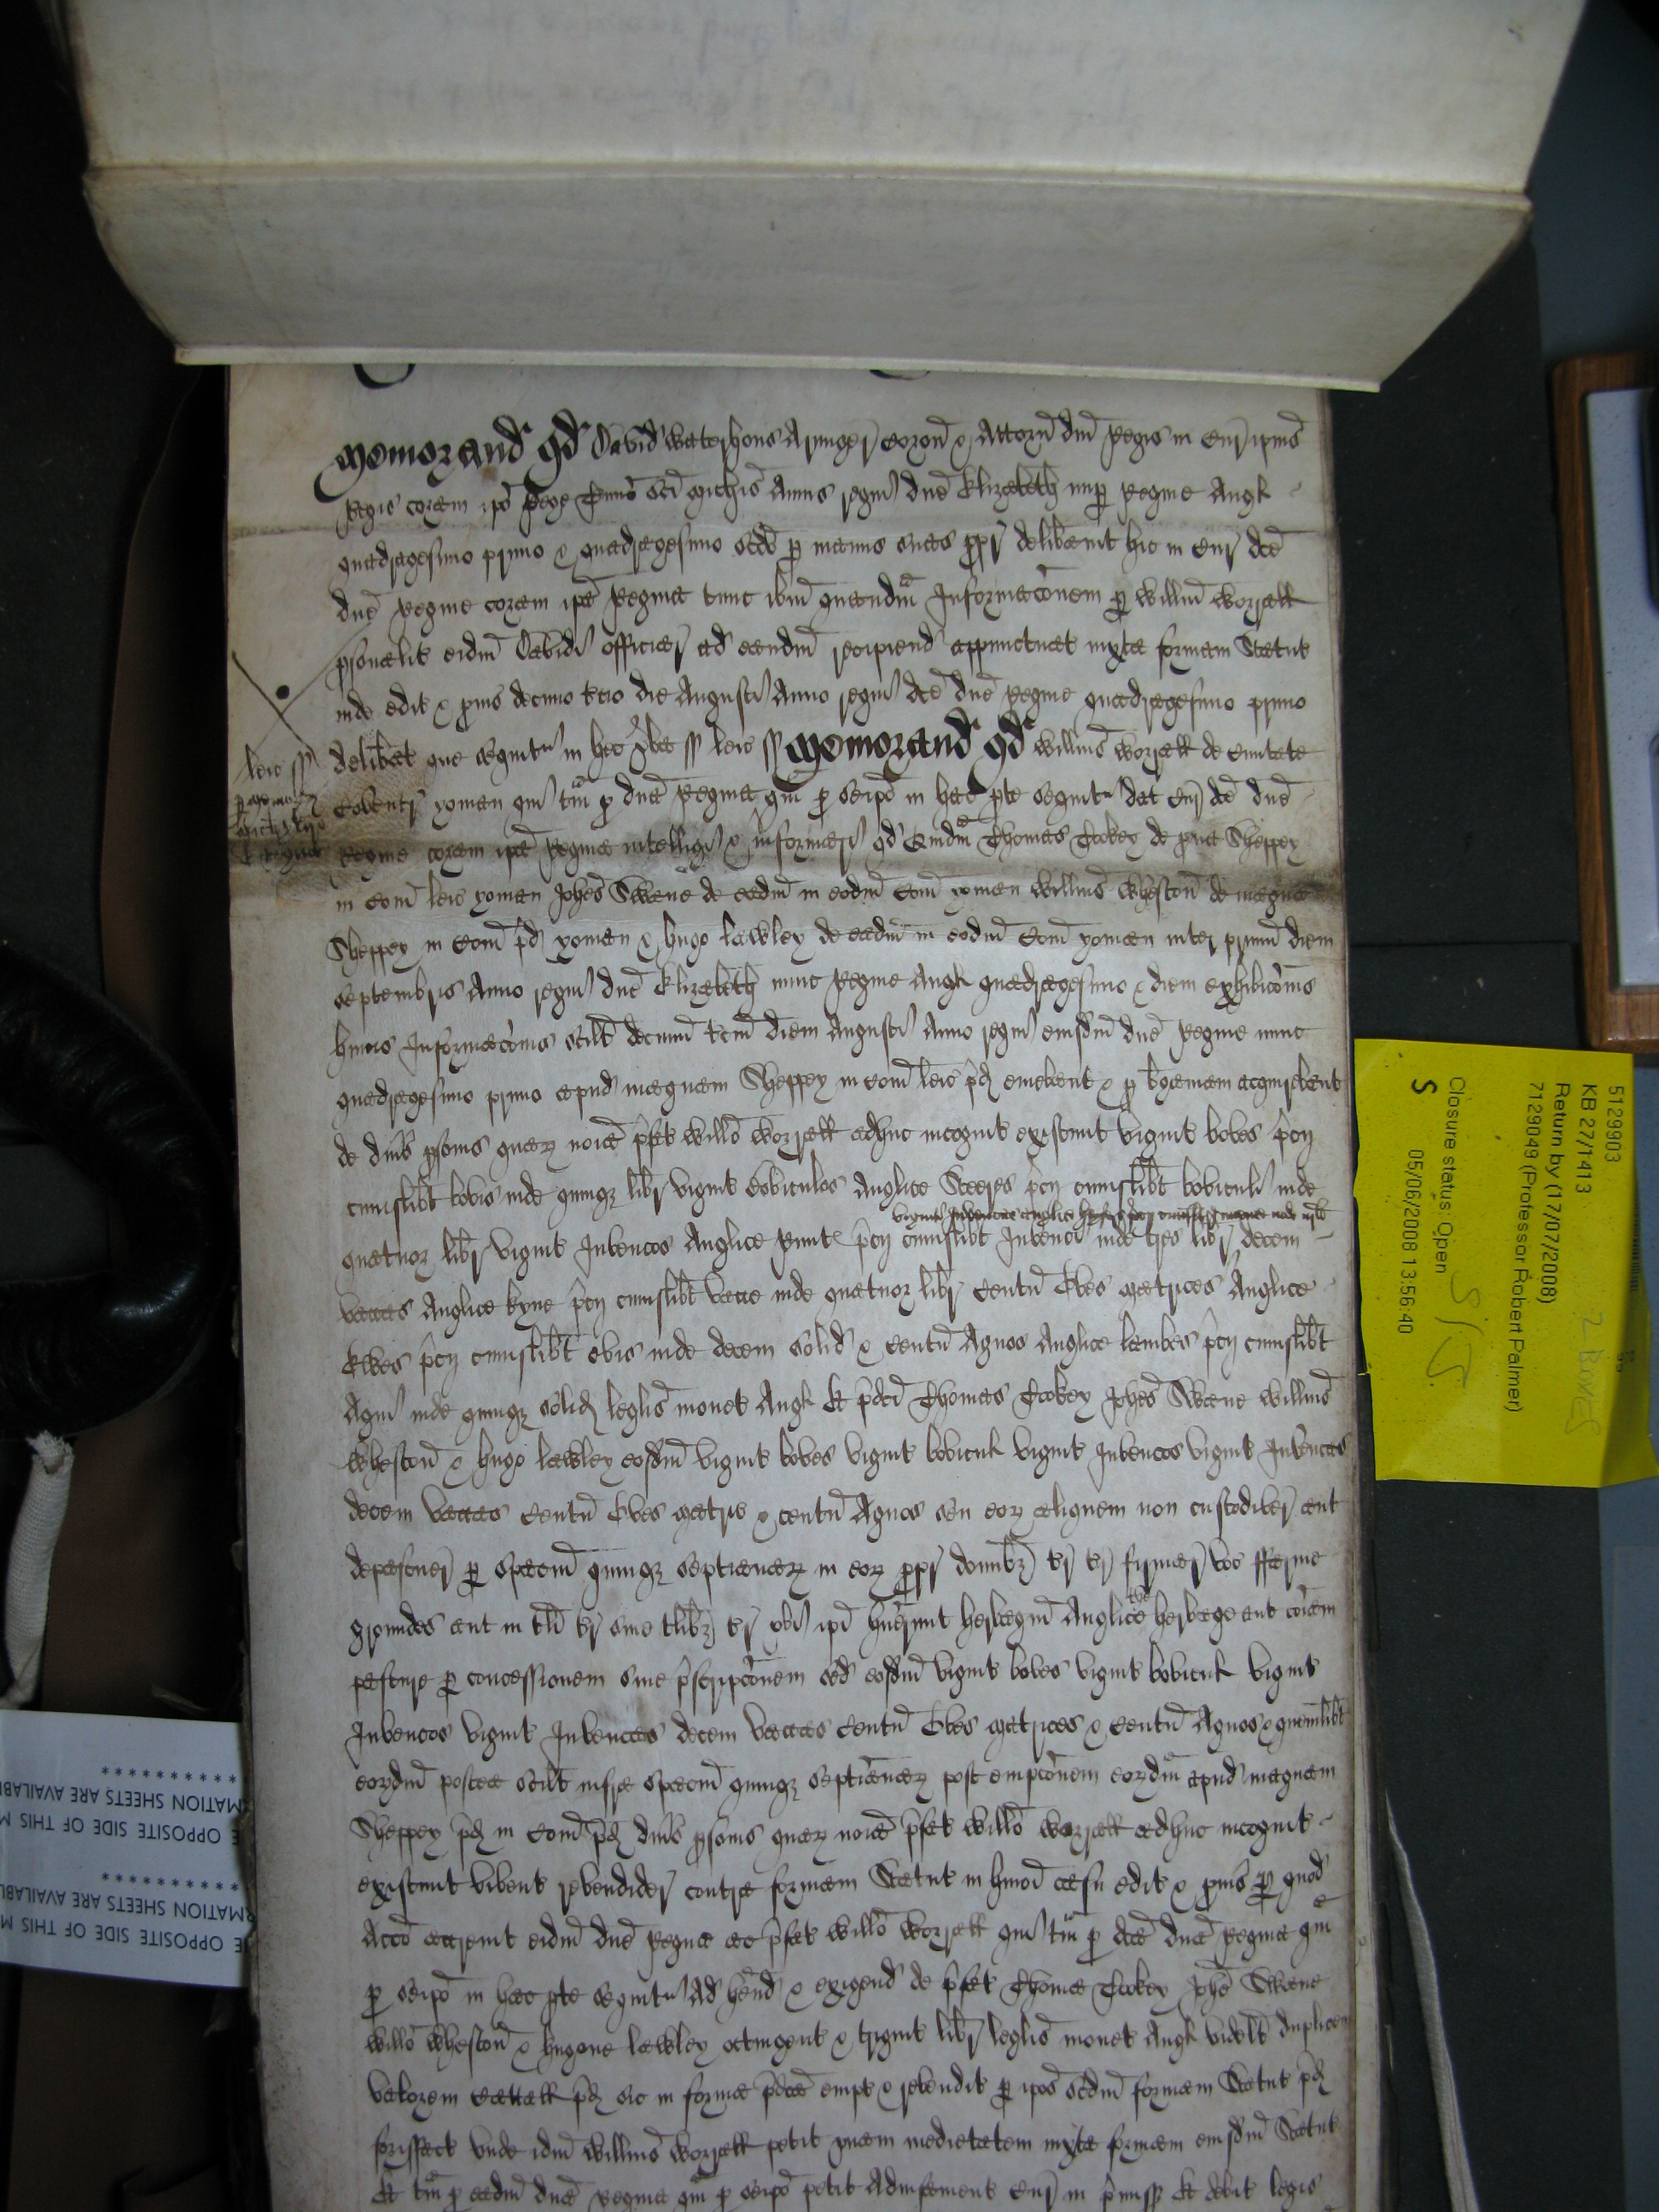 Memorand qd David Waterhous Armiger Coron & Attorn dni Regis in Cur ipius
Regis coram ipo Rege Termio sci Michis Annis regni dne Elizabeth nup Regine Angl
quadragesimo primo & quadragesimo scdo p manus suas ppr delibavit hic in Cur dce
dne Regine coram ipa Regina tunc ibm quandm Informaconem p Willm Worrall
psonalit eidm Davidi officiar ad eandm recipiend appunctuat iuxta formam Statut
inde edit & pvis decimo tcio die Augusti Anno regni dce dne Regine quadragesimo primo
leic ss delibat que sequitur in hec vba ss leic ss Memorand qd Willms Worrall de Civitate
Coventr yoman qui tm p dna Regina qm p seipo in hac pte sequitur dat Cur dce dne
Regine coram ipa Regina intelligi & informari qd quidm Thomas Cookey de pva Sheppey
in Com leic yoman Johes Swane de eadm in eodm Com yoman Willms Wheston de magna
Sheppey in Com pd yoman & hugo lawley de eadm in eodm Com yoman inter primu diem
Septembris Anno regni dne Elizabeth nunc Regine Angl quadragesimo & diem exhibiconis
huius Informaconis scilt decimu tciu diem Augusti Anno regni eiusdm dne Regine nunc
quadragesimo primo apud magnam Sheppey in Com leic pd emebant & p bgamam acquirebant
de divs psonis quaz noia pfat Willo Worrall adhuc incognit existunt vigint boves pcij
cuiuslibt bovis inde quinqz libr vigint boviculos Anglice Steeres pcij cuiuslibt boviculi inde
vigint Juvencas anglice heyfers pcij cuiuslibt Juvence inde
quatuor libr vigint Juvencos Anglice Runts pcij cuiuslibt Juvenci inde tres libr decem
vaccas Anglice kyne pcij cuiuslibt vacce inde quatuor libr Centu Oves matrices Anglice
Ewes pcij cuiuslibt ovis inde decem solid & Centu Agnos Anglice lambes pcij cuiuslibt
Agni inde quinqz solid leglis monet Angl Et pdci Thomas Cookey Johes Swane Willms
Wheston & hugo lawley eosdm vigint boves vigint bovicul vigint Juvencos vigint Juvencas
decem vaccas Centu Oves matric & centu Agnos seu eoz aliquem non custodiver aut
depascuer p spacm quinqz septianaz in eoz ppr domibz tr tr firmar voc fferme
groundes aut in tli tr sive tlibz tr ubi ipi huerunt herbagm Anglice the herbage aut coiam
pasture p concessionem sive pscripconem sed eosdm vigint boves vigint bovicul vigint
Juvencos vigint Juvencas decem vaccas Centu Oves matrices & Centu Agnos & quemlibt
eozdm postea scilt infra spacm quinqz septianaz post empconem eozdm apud magnam
Sheppey pd in Com pd divs psonis quaz noia pfat Willo Worrall adhuc incognit
existunt vivent revendider contra formam Statut in hmoi casu edit & pvis p quod
Acco accrevit eidm dne Regine ac pfat Willo Worrall qui tm p dca dna Regina qm
p seipo in hac pte sequitur Ad hend & exigend de pfat Thoma Cookey Johe Swane
Willo Wheston & hugone lawley octingent & trigint libr leglis monet Angl videlt duplicem
valorem catall pd sic in forma pdca empt & revendit p ipos scdm formam Statut pd
forisfact Unde idm Willms Worrall petit unam medietatem iuxta formam eiusdm Statut
Et tm p eadm dna Regina qm p seipo petit Advisament Cur in pmiss Et debit legis
5129903
KB 27/1413
Return by (17/07/2008)
7129049 (Professor Robert Palmer)
2 BOXES
Closure status: Open
05/06/2008 13:56:40
S
OPPOSITE SIDE OF THIS
MATION SHEETS ARE AVAILABL
**********
OPPOSITE SIDE OF THIS
RMATION SHEETS ARE AVAILABL
**********